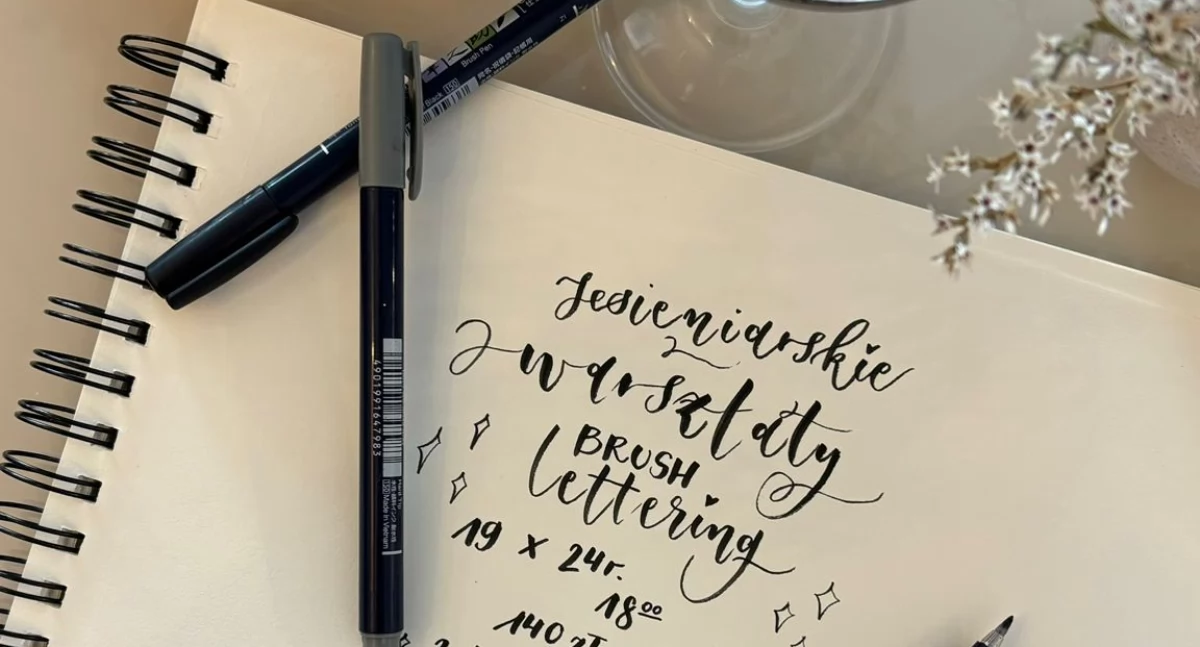 Brush Pen
4901991647983
Made in Vietnam
Jesieniarskie
warsztaty
BRUSH
lettering
19 x 24r.
18⁰⁰
140 zł